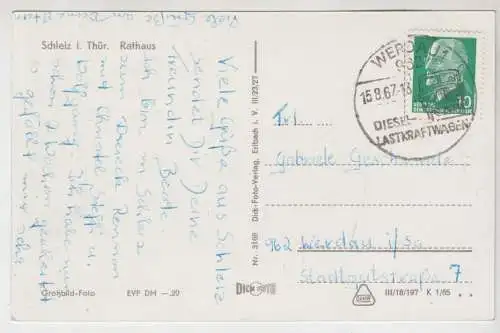 Schleiz i. Thür. Rathaus
Viele Grüße an Deine Eltern
Viele Grüße aus Schleiz
sendet Dir Deine
Freundin Beate.
Ich bin in Schleiz
zum Dreieck Rennen
mit Christel, Steffi u.
Wolfgang. Ich habe nun
schon Wochen gezeltet
es gefällt mir sehr
Großbild-Foto EVP DM —.20
Nr. 3168 Dick-Foto-Verlag, Erlbach i. V. III/23/27
DICK FOTO
WERDAU 1
962
15.8.67-18
DIESEL-
LASTKRAFTWAGEN
10
Frl.
Gabriele
962 Werdau i/Sa.
Stadtgutstraße 7
III/18/197 K 1/65